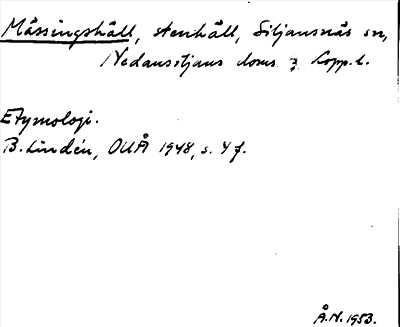 Mässingshäll, stenhäll, Siljansnäs sn,
Nedansiljans doms. 3, Kopp. l.
Etymologi.
B. Lindén, OUÅ 1948, s. 4 f.
Å.N. 1953.